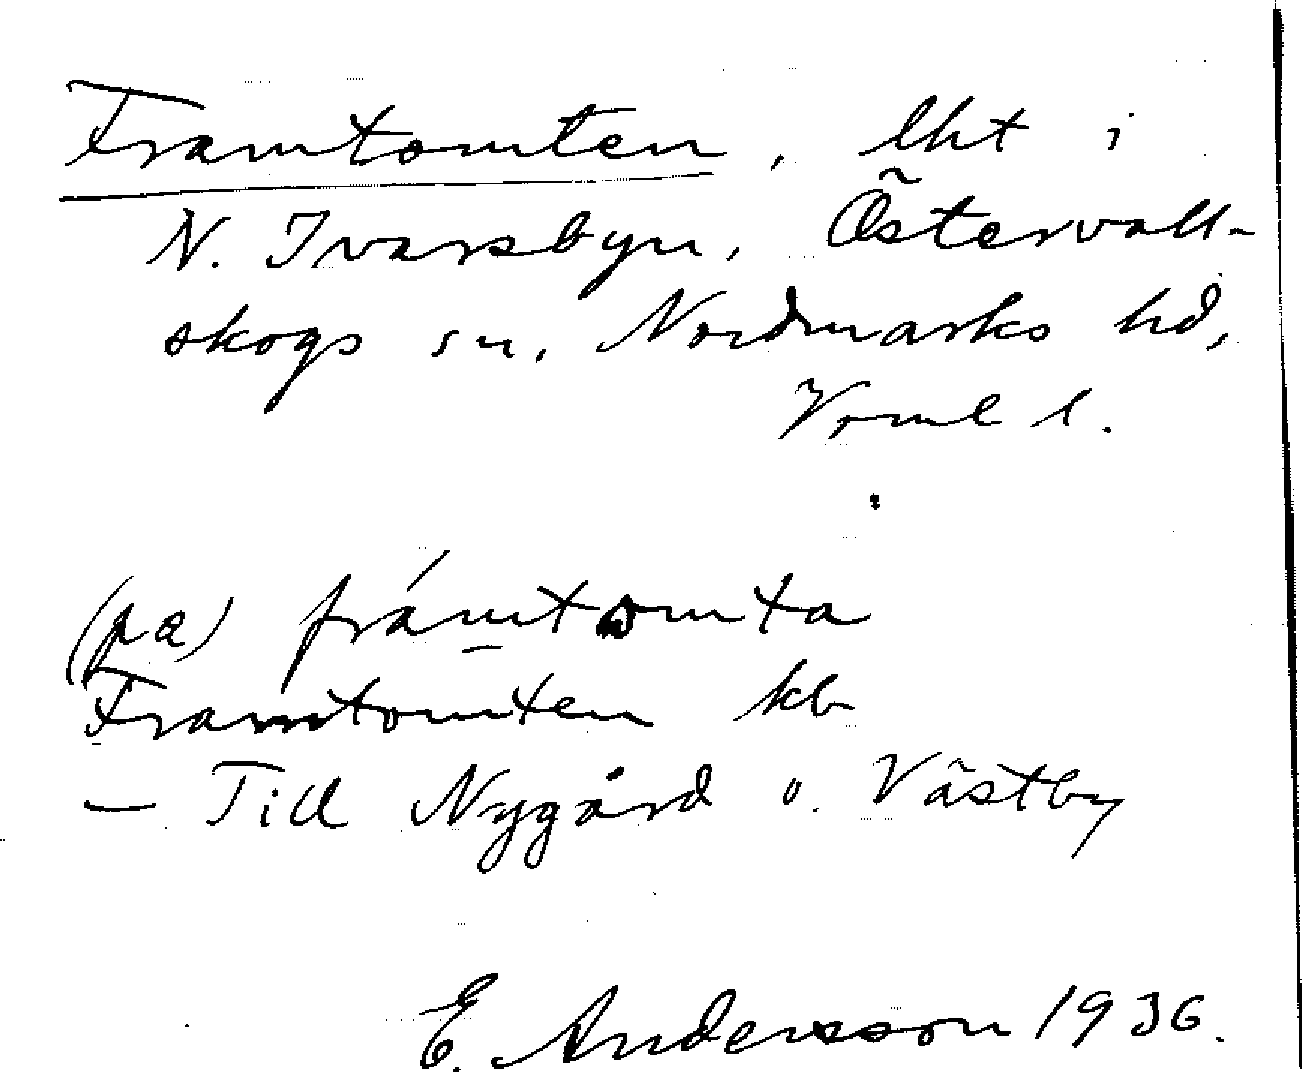 Framtomten, lht i
N. Ivarsbyn, Östervall-
skogs sn. Nordmarks hd,
Vrml l.
(pa) frámtomta
Framtomten kb
— Till Nygård o. Västby
E. Andersson 1936.